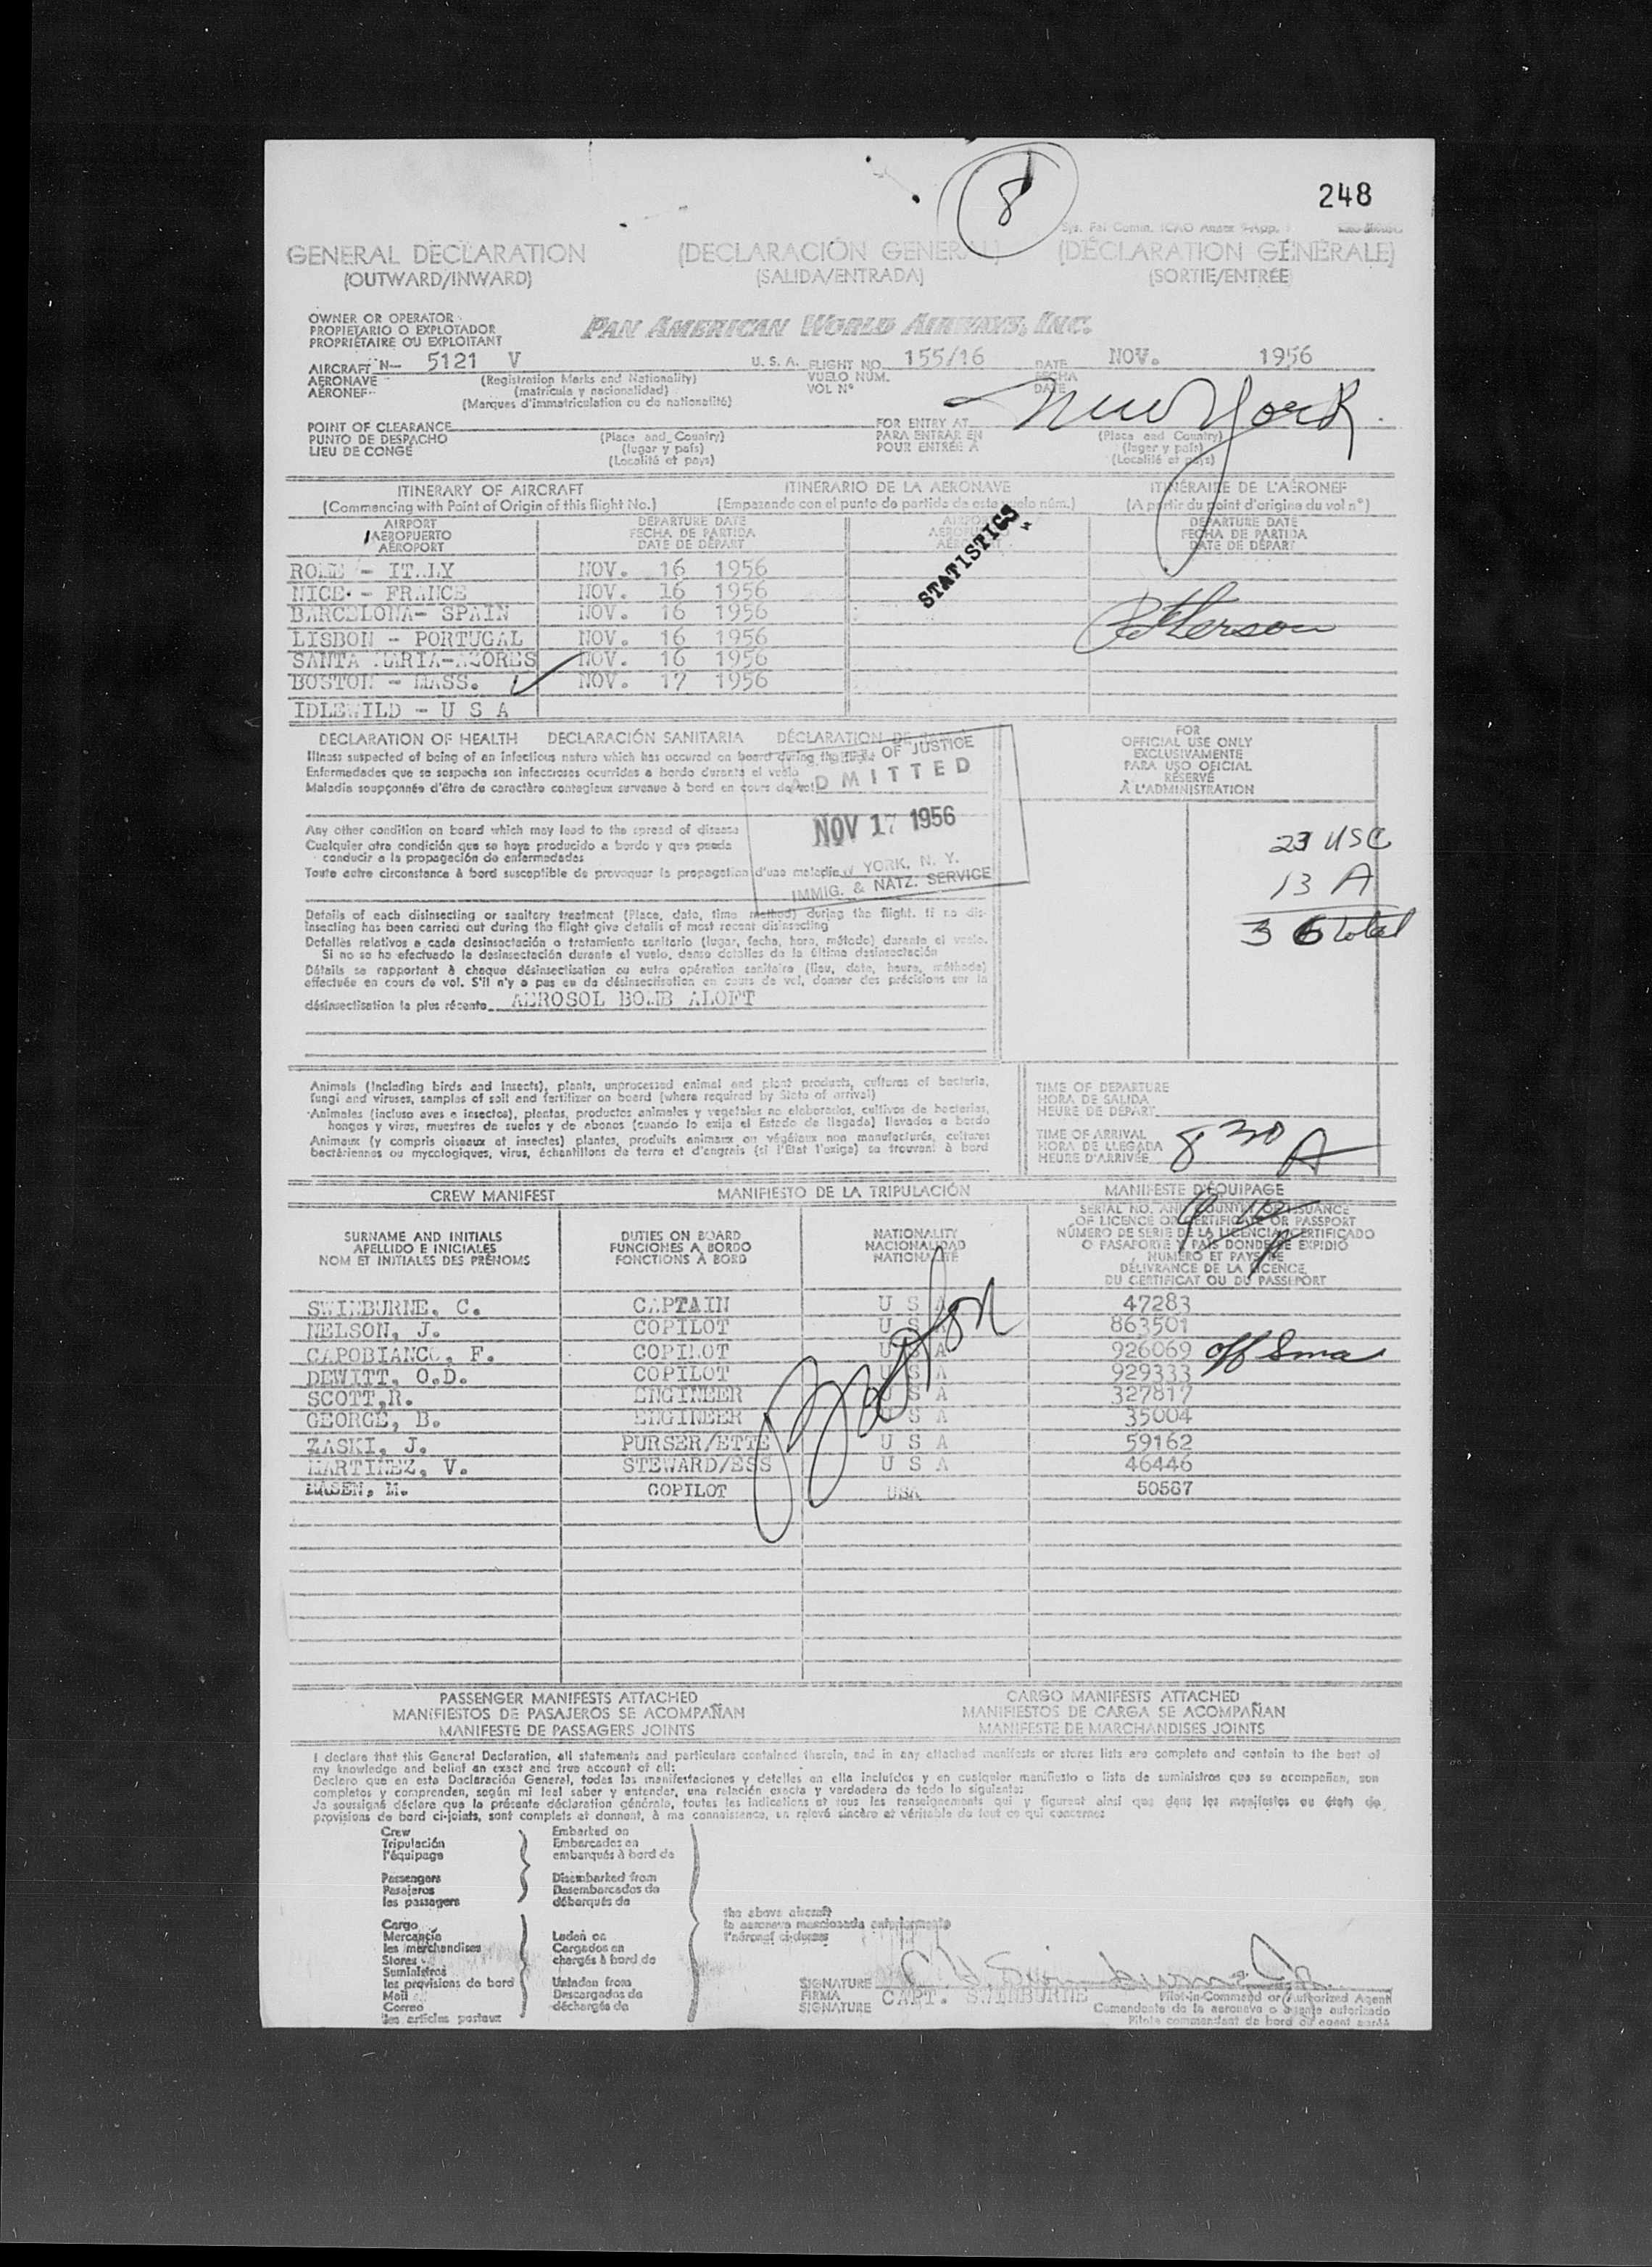 8
248
GENERAL DECLARATION (DECLARACIÓN GENERAL) (DÉCLARATION GÉNÉRALE)
(OUTWARD/INWARD) (SALIDA/ENTRADA) (SORTIE/ENTRÉE)
OWNER OR OPERATOR
PROPIETARIO O EXPLOTADOR
PROPRIÉTAIRE OU EXPLOITANT
PAN AMERICAN WORLD AIRWAYS, INC.
AIRCRAFT N— 5121 V U. S. A. FLIGHT NO. 155/16 DATE NOV. 1956
AERONAVE (Registration Marks and Nationality) VUELO NÚM. FECHA
AÉRONEF (matrícula y nacionalidad) VOL N° DATE
(Marques d'immatriculation ou de nationalité)
New York
POINT OF CLEARANCE FOR ENTRY AT
PUNTO DE DESPACHO (Place and Country) PARA ENTRAR EN (Place and Country)
LIEU DE CONGÉ (lugar y país) POUR ENTRÉE À (lugar y país)
(Localité et pays) (Localité et pays)
ITINERARY OF AIRCRAFT ITINERARIO DE LA AERONAVE ITINÉRAIRE DE L'AÉRONEF
(Commencing with Point of Origin of this flight No.) (Empezando con el punto de partida de este vuelo núm.) (A partir du point d'origine du vol n°)
AIRPORT DEPARTURE DATE DEPARTURE DATE
AEROPUERTO FECHA DE PARTIDA FECHA DE PARTIDA
AÉROPORT DATE DE DÉPART DATE DE DÉPART
STATISTICS
ROME - ITALY NOV. 16 1956
NICE - FRANCE NOV. 16 1956
BARCELONA- SPAIN NOV. 16 1956
LISBON - PORTUGAL NOV. 16 1956
SANTA MARIA-AZORES NOV. 16 1956
BOSTON - MASS. NOV. 17 1956
IDLEWILD - U S A
DECLARATION OF HEALTH DECLARACIÓN SANITARIA DÉCLARATION DE
FOR
OFFICIAL USE ONLY
EXCLUSIVAMENTE
PARA USO OFICIAL
RÉSERVÉ
À L'ADMINISTRATION
Illness suspected of being of an infectious nature which has occured on board during the flight
Enfermedades que se sospecha son infecciosas ocurridas a bordo durante el vuelo
Maladie soupçonnée d'être de caractère contagieux survenue à bord en cours de vol
OF JUSTICE
ADMITTED
NOV 17 1956
YORK, N. Y.
IMMIG. & NATZ. SERVICE
Any other condition on board which may lead to the spread of disease
Cualquier otra condición que se haya producido a bordo y que pueda
conducir a la propagación de enfermedades
Toute autre circonstance à bord susceptible de provoquer la propagation d'une maladie
23 USC
13 A
36 total
Details of each disinsecting or sanitary treatment (Place, date, time method) during the flight. If no dis-
insecting has been carried out during the flight give details of most recent disinsecting
Detalles relativos a cada desinsectación o tratamiento sanitario (lugar, fecha, hora, método) durante el vuelo.
Si no se ha efectuado la desinsectación durante el vuelo, dense detalles de la última desinsectación
Détails se rapportant à chaque désinsectisation ou autre opération sanitaire (lieu, date, heure, méthode)
effectuée en cours de vol. S'il n'y a pas eu de désinsectisation en cours de vol, donner des précisions sur la
désinsectisation la plus récente AEROSOL BOMB ALOFT
Animals (Including birds and Insects), plants, unprocessed animal and plant products, cultures of bacteria,
fungi and viruses, samples of soil and fertilizer on board (where required by State of arrival)
Animales (incluso aves e insectos), plantas, productos animales y vegetales no elaborados, cultivos de bacterias,
hongos y virus, muestras de suelos y de abonos (cuando lo exija el Estado de llegada) llevados a bordo
Animaux (y compris oiseaux et insectes) plantes, produits animaux ou végétaux non manufacturés, cultures
bactériennes ou mycologiques, virus, échantillons de terre et d'engrais (si l'État l'exige) se trouvant à bord
TIME OF DEPARTURE
HORA DE SALIDA
HEURE DE DÉPART
TIME OF ARRIVAL
HORA DE LLEGADA
HEURE D'ARRIVÉE 8 30 A
CREW MANIFEST MANIFIESTO DE LA TRIPULACIÓN MANIFESTE D'ÉQUIPAGE
SURNAME AND INITIALS
APELLIDO E INICIALES
NOM ET INITIALES DES PRÉNOMS
DUTIES ON BOARD
FUNCIONES A BORDO
FONCTIONS À BORD
NATIONALITY
NACIONALIDAD
NATIONALITÉ
SERIAL NO. AND COUNTRY OF ISSUANCE
OF LICENCE OR CERTIFICATE OR PASSPORT
NÚMERO DE SERIE DE LA LICENCIA, CERTIFICADO
O PASAPORTE Y PAÍS DONDE SE EXPIDIÓ
NUMÉRO ET PAYS DE
DÉLIVRANCE DE LA LICENCE,
DU CERTIFICAT OU DU PASSEPORT
SWINBURNE, C. CAPTAIN U S A 47283
NELSON, J. COPILOT U S A 863501
CAPOBIANCO, F. COPILOT U S A 926069 off Sma
DEWITT, O.D. COPILOT U S A 929333
SCOTT,R. ENGINEER U S A 327817
GEORGE, B. ENGINEER U S A 35004
ZASKI, J. PURSER/ETTE U S A 59162
MARTINEZ, V. STEWARD/ESS U S A 46446
MASEN, M. COPILOT USA 50587
PASSENGER MANIFESTS ATTACHED CARGO MANIFESTS ATTACHED
MANIFIESTOS DE PASAJEROS SE ACOMPAÑAN MANIFIESTOS DE CARGA SE ACOMPAÑAN
MANIFESTE DE PASSAGERS JOINTS MANIFESTE DE MARCHANDISES JOINTS
I declare that this General Declaration, all statements and particulars contained therein, and in any attached manifests or stores lists are complete and contain to the best of
my knowledge and belief an exact and true account of all:
Declaro que en esta Declaración General, todas las manifestaciones y detalles en ella incluídos y en cualquier manifiesto o lista de suministros que se acompañen, son
completos y comprenden, según mi leal saber y entender, una relación exacta y verdadera de todo lo siguiente:
Je soussigné déclare que la présente déclaration générale, toutes les indications et tous les renseignements qui y figurent ainsi que dans les manifestes ou états de
provisions de bord ci-joints, sont complets et donnent, à ma connaissance, un relevé sincère et véritable de tout ce qui concerne:
Crew Embarked on
Tripulación Embarcados en
l'équipage embarqués à bord de
Passengers Disembarked from
Pasajeros Desembarcados de
les passagers débarqués de
the above aircraft
la aeronave mencionada anteriormente
l'aéronef ci-dessus
Cargo
Mercancía Laden on
les marchandises Cargados en
Stores chargés à bord de
Suministros
les provisions de bord Unladen from
Mail Descargados de
Correo déchargés de
les articles postaux
SIGNATURE
FIRMA CAPT. SWINBURNE
SIGNATURE
Pilot-in-Command or Authorized Agent
Comandante de la aeronave o agente autorizado
Pilote commandant de bord ou agent agréé